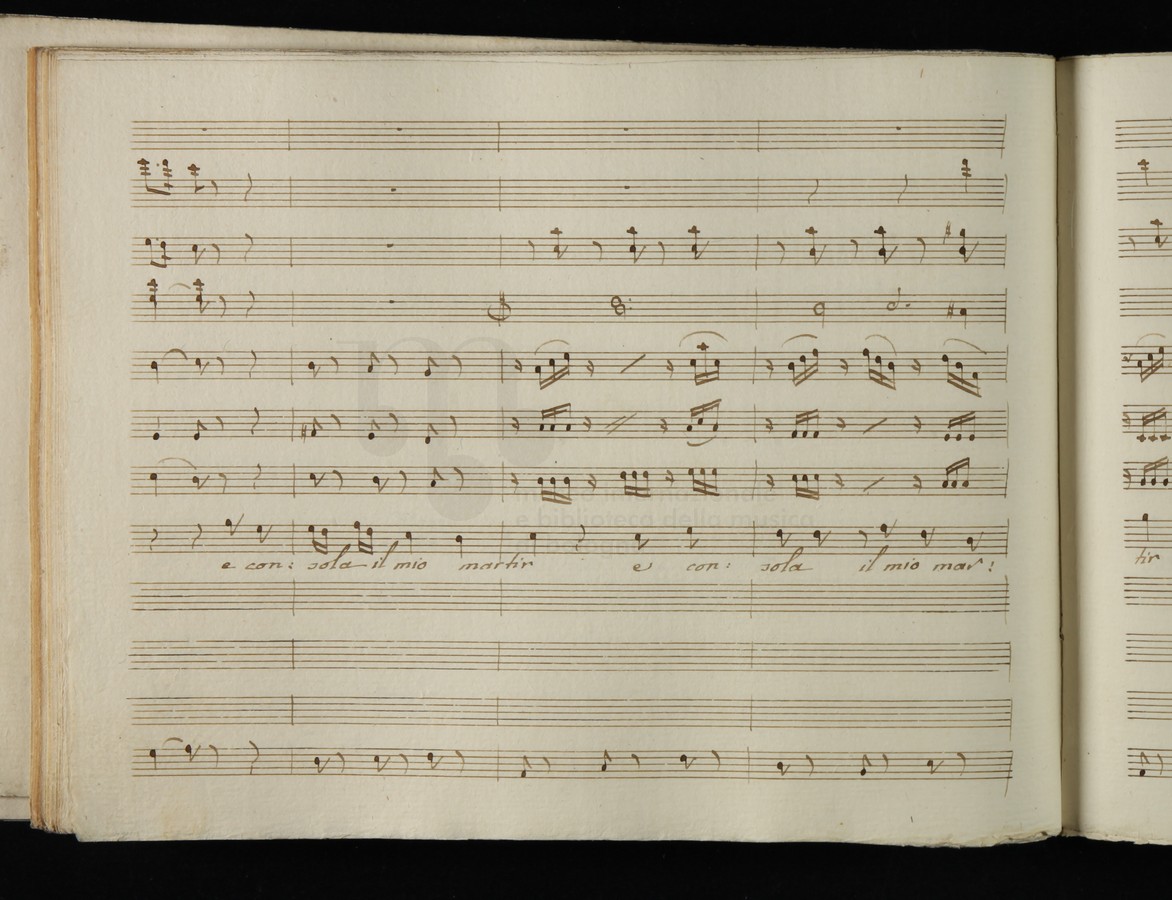 e con: sola il mio martir e con: sola il mio mar: tir
museo internazionale
e biblioteca della musica